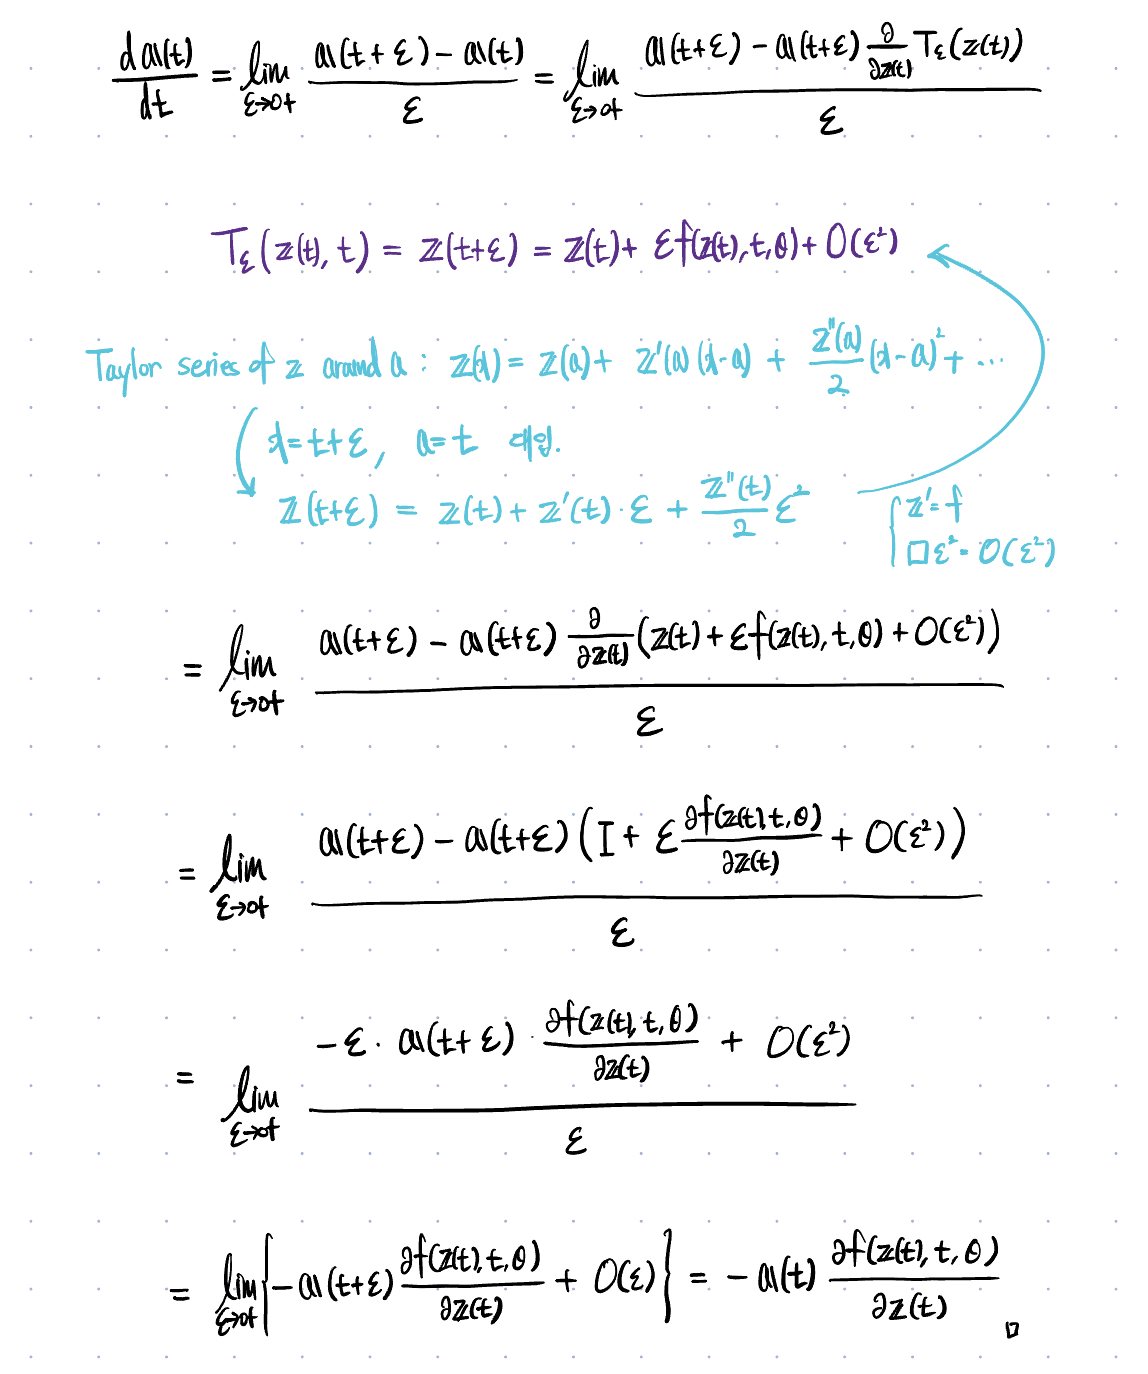 d𝕒(t)/dt = lim ε→0+ (𝕒(t+ε) − 𝕒(t))/ε = lim ε→0+ (𝕒(t+ε) − 𝕒(t+ε) ∂/∂𝕫(t) T_ε(𝕫(t)))/ε
T_ε(𝕫(t), t) = 𝕫(t+ε) = 𝕫(t) + εf(𝕫(t), t, θ) + O(ε²)
Taylor series of 𝕫 around a : 𝕫(x) = 𝕫(a) + 𝕫'(a)(x−a) + 𝕫''(a)/2 (x−a)² + ⋯
x = t+ε, a = t 대입.
𝕫(t+ε) = 𝕫(t) + 𝕫'(t)·ε + 𝕫''(t)/2 ε²
{ 𝕫' = f
□ε² = O(ε²)
= lim ε→0+ (𝕒(t+ε) − 𝕒(t+ε) ∂/∂𝕫(t) (𝕫(t) + εf(𝕫(t), t, θ) + O(ε²)))/ε
= lim ε→0+ (𝕒(t+ε) − 𝕒(t+ε) (I + ε ∂f(𝕫(t), t, θ)/∂𝕫(t) + O(ε²)))/ε
= lim ε→0+ (−ε · 𝕒(t+ε) · ∂f(𝕫(t), t, θ)/∂𝕫(t) + O(ε²))/ε
= lim ε→0+ {−𝕒(t+ε) ∂f(𝕫(t), t, θ)/∂𝕫(t) + O(ε)} = −𝕒(t) ∂f(𝕫(t), t, θ)/∂𝕫(t) □